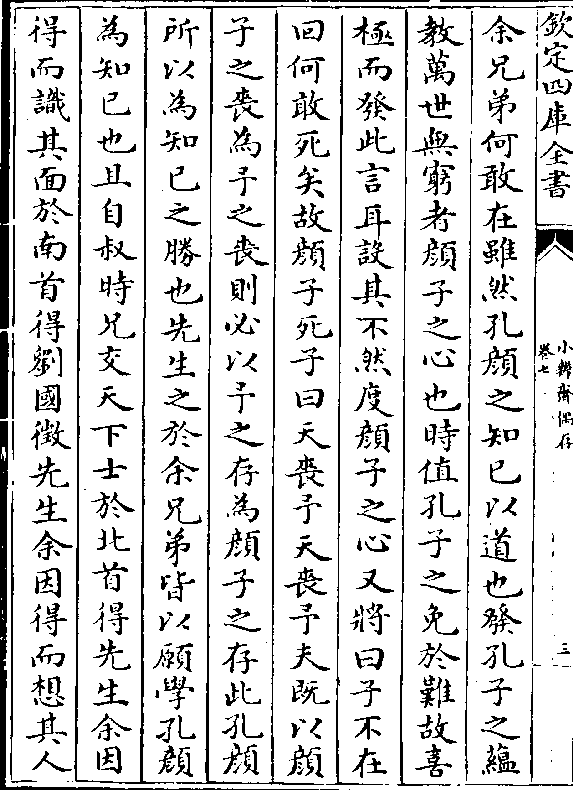 欽定四庫全書
小辨齋偶存
卷七
三
余兄弟何敢在雖然孔顔之知已以道也發孔子之蘊
教萬世無窮者顔子之心也時值孔子之免於難故喜
極而發此言耳設其不然度顔子之心又將曰子不在
回何敢死矣故顔子死子曰天喪予天喪予夫既以顔
子之喪為予之喪則必以予之存為顔子之存此孔顔
所以為知已之勝也先生之於余兄弟皆以願學孔顔
為知已也且自叔時兄交天下士於北首得先生余因
得而識其面於南首得劉國徵先生余因得而想其人